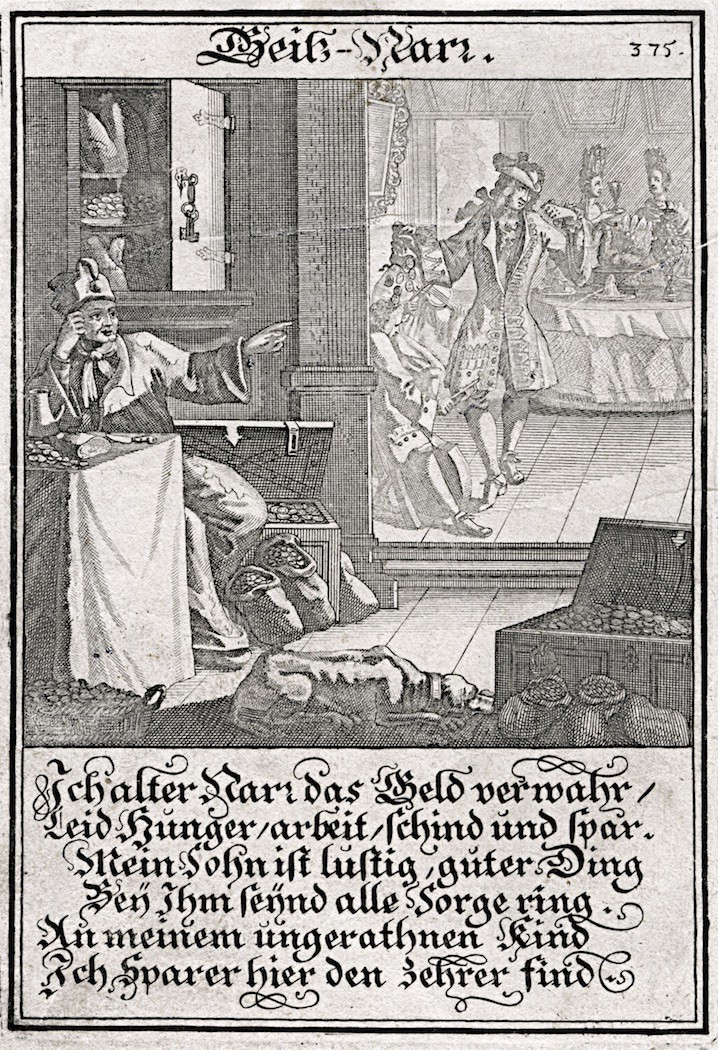 Geitz-Narr.
375.
Ich alter Narr das Geld verwahr/
Leid Hunger/arbeit/schind und spar.
Mein Sohn ist lustig/guter Ding
Bey Ihm seynd alle Sorge ring.
An meinem ungerathnen Kind
Ich Sparer hier den zehrer find.